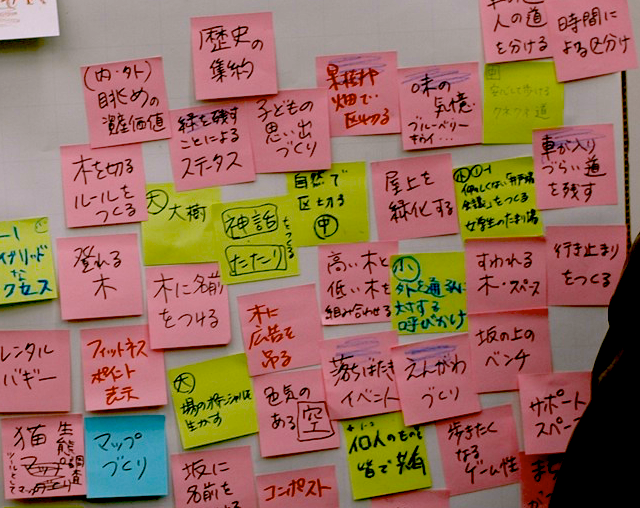 歴史の
集約
人の道
を分ける
時間に
よる区分け
(内・外)
眺めの
資産価値
緑を残す
ことによる
ステータス
子どもの
思い出
づくり
果樹や
畑で
区切る
味の
気憶
ブルーベリー
安心して歩ける
クネクネ道
木を切る
ルールを
つくる
大
大樹
神話
をつくる
たたり
自然で
区切る
中
屋上を
緑化する
車が入り
づらい道
を残す
登れる
木
木に名前
をつける
高い木と
低い木を
組み合わせる
小
外を通る人に
対する
呼びかけ
すわれる
木・スペース
行き止まり
をつくる
レンタル
バギー
フィットネス
ポイント
表示
木に
広告を
吊る
落ちばたき
イベント
えんがわ
づくり
坂の上の
ベンチ
大
場のポテンシャルを
生かす
色気の
ある空
個人のものを
皆で共有
歩きたく
なる
ゲーム性
サポート
スペース
猫
生態
マップ
づくり
坂に
名前を
コンポスト